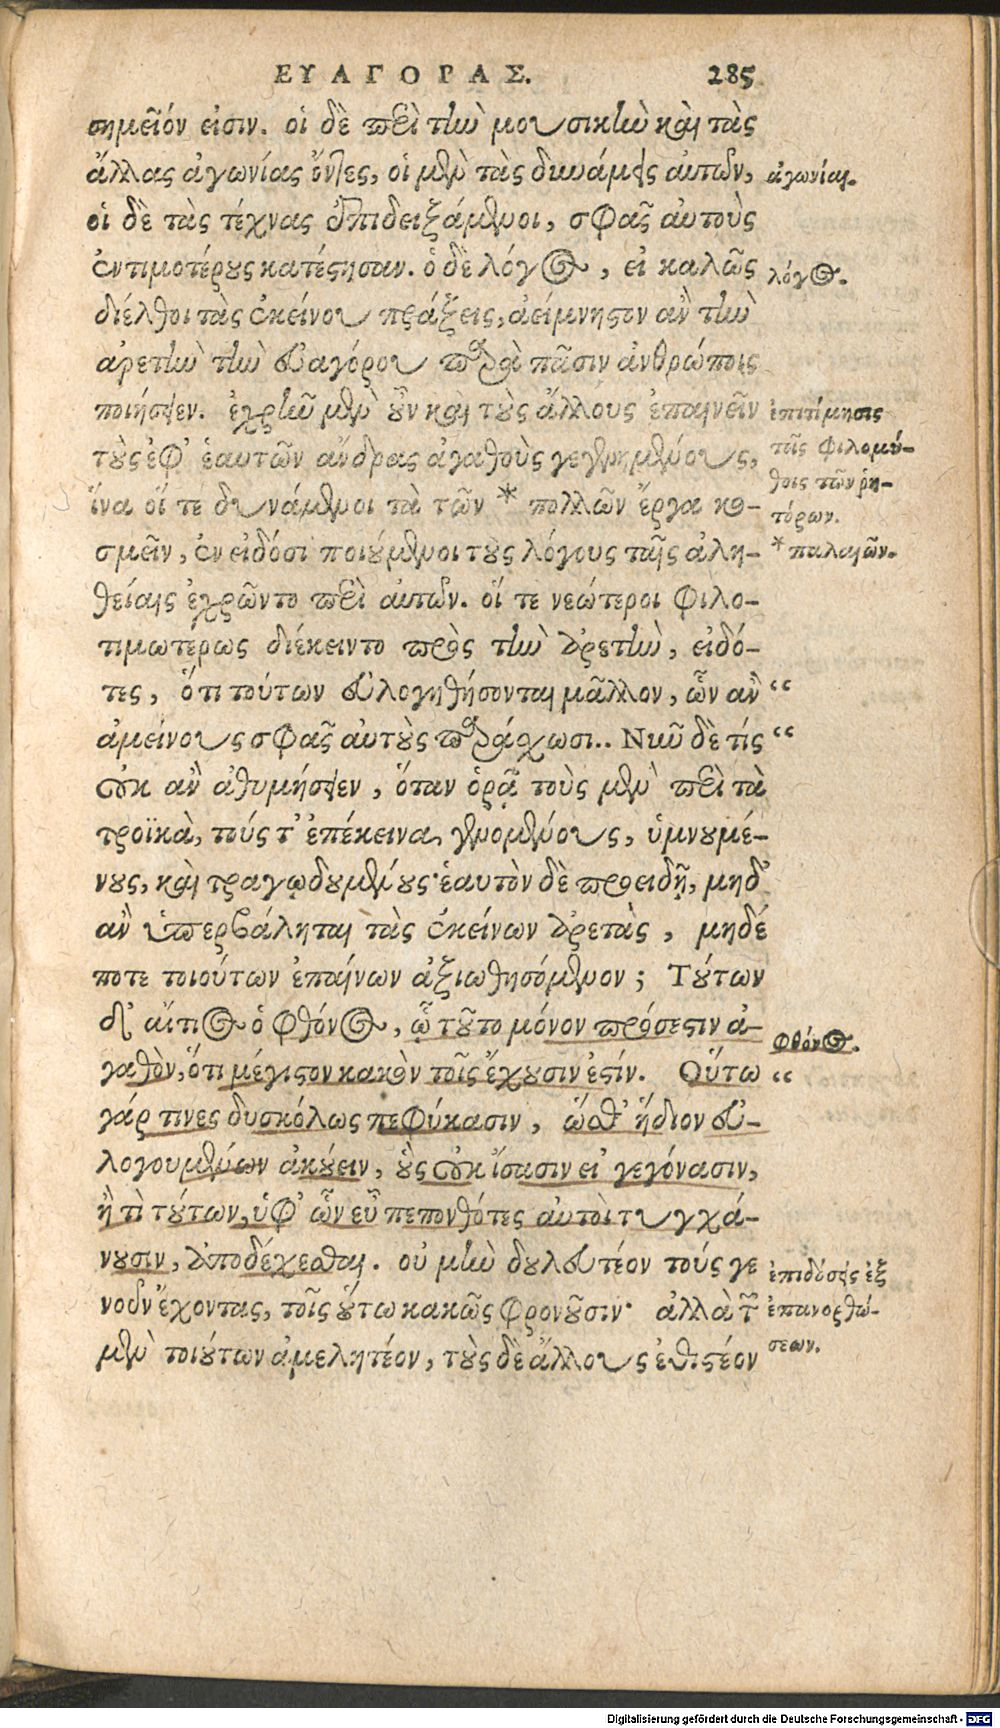 ΕΥΑΓΟΡΑΣ. 285
σημεῖόν εἰσιν. οἱ δὲ περὶ τὴν μουσικὴν καὶ τὰς
ἄλλας ἀγωνίας ὄντες, οἱ μὲν τὰς δυνάμεις αὐτῶν,
ἀγωνίαι.
οἱ δὲ τὰς τέχνας ἐπιδειξάμενοι, σφᾶς αὐτοὺς
ἐντιμοτέρους κατέστησαν. ὁ δὲ λόγος, εἰ καλῶς
λόγος.
διέλθοι τὰς ἐκείνου πράξεις, ἀείμνηστον ἂν τὴν
ἀρετὴν τὴν Εὐαγόρου παρὰ πᾶσιν ἀνθρώποις
ποιήσειεν. ἐχρῆν μὲν οὖν καὶ τοὺς ἄλλους ἐπαινεῖν
ἐπιτίμησις
τοὺς ἐφ' ἑαυτῶν ἄνδρας ἀγαθοὺς γεγενημένους,
ταῖς φιλομύ-
θοις τῶν ῥη-
ἵνα οἵ τε δυνάμενοι τὰ τῶν * πολλῶν ἔργα κο-
τόρων.
σμεῖν, ἐν εἰδόσι ποιούμενοι τοὺς λόγους ταῖς ἀλη-
* παλαιῶν.
θείαις ἐχρῶντο περὶ αὐτῶν. οἵ τε νεώτεροι φιλο-
τιμωτέρως διέκειντο πρὸς τὴν ἀρετὴν, εἰδό-
τες, ὅτι τούτων εὐλογηθήσονται μᾶλλον, ὧν ἂν “
ἀμείνους σφᾶς αὐτοὺς παράσχωσι.. Νῦν δὲ τίς “
οὐκ ἂν ἀθυμήσειεν, ὅταν ὁρᾷ τοὺς μὲν περὶ τὰ
τροϊκὰ, τούς τ' ἐπέκεινα γενομένους, ὑμνουμέ-
νους, καὶ τραγῳδουμένους· ἑαυτὸν δὲ προειδῇ, μηδ'
ἂν ὑπερβάληται τὰς ἐκείνων ἀρετὰς, μηδέ
ποτε τοιούτων ἐπαίνων ἀξιωθησόμενον; Τούτων
δ' αἴτιος ὁ φθόνος, ᾧ τοῦτο μόνον πρόσεστιν ἀ-
φθόνος.
γαθὸν, ὅτι μέγιστον κακὸν τοῖς ἔχουσιν ἐστίν. Οὕτω “
γάρ τινες δυσκόλως πεφύκασιν, ὥσθ' ἥδιον εὐ-
λογουμένων ἀκούειν, οὓς οὐκ ἴσασιν εἰ γεγόνασιν,
ἢ τὶ τούτων, ὑφ' ὧν εὖ πεπονθότες αὐτοὶ τυγχά-
νουσιν, ἀποδέχεσθαι. οὐ μὴν δουλευτέον τούς γε
ἐπιδόσεις ἐξ
νοῦν ἔχοντας, τοῖς οὕτω κακῶς φρονοῦσιν· ἀλλὰ τῶν
ἐπανορθώ-
σεων.
μὲν τοιούτων ἀμελητέον, τοὺς δὲ ἄλλους ἐθιστέον
Digitalisierung gefördert durch die Deutsche Forschungsgemeinschaft - DFG